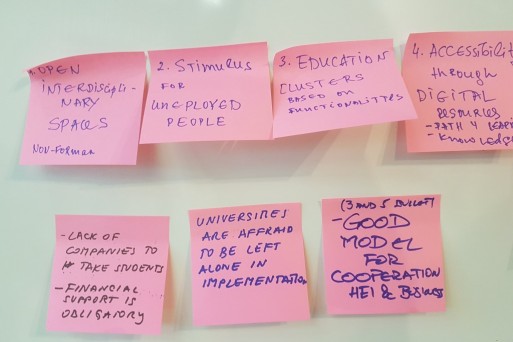 1. OPEN
INTERDISCIPLI-
NARY
SPACES
NON-FORMAL
2. STIMULUS
FOR
UNEPLOYED
PEOPLE
3. EDUCATION
CLUSTERS
BASED ON
FUNCTIONALITTES
4. ACCESSIBILIT
through
DIGITAL
RESOURCES
- PATH 4 LEARN
- KNOWLEDGE
- LACK OF
COMPANIES TO
TAKE STUDENTS
- FINANCIAL
SUPPORT IS
OBLIGATORY
UNIVERSIRES
ARE AFFRAID
TO BE LEFT
ALONE IN
IMPLEMENTATION
(3 AND 5
- GOOD
MODEL
FOR
COOPERATION
HEI & BUSINESS